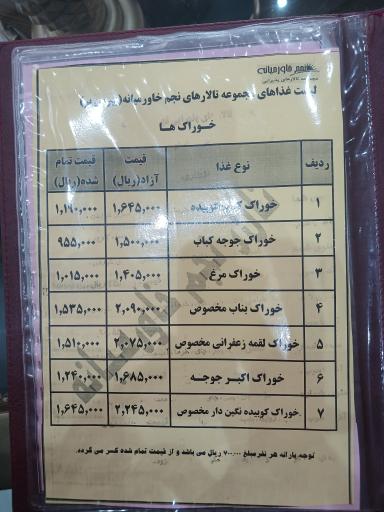 نجم خاورمیانه
مجموعه تالارهای پذیرایی
لیست غذاهای مجموعه تالارهای نجم خاورمیانه
خوراک ها
ردیف نوع غذا قیمت آزاد(ریال) قیمت تمام شده(ریال)
۱ خوراک کباب کوبیده ۱,۶۴۵,۰۰۰ ۱,۱۹۰,۰۰۰
۲ خوراک جوجه کباب ۱,۵۰۰,۰۰۰ ۹۵۵,۰۰۰
۳ خوراک مرغ ۱,۴۰۵,۰۰۰ ۱,۰۱۵,۰۰۰
۴ خوراک بناب مخصوص ۲,۰۹۰,۰۰۰ ۱,۵۳۵,۰۰۰
۵ خوراک لقمه زعفرانی مخصوص ۲,۰۷۵,۰۰۰ ۱,۵۱۰,۰۰۰
۶ خوراک اکبر جوجه ۱,۶۸۵,۰۰۰ ۱,۲۴۰,۰۰۰
۷ خوراک کوبیده نگین دار مخصوص ۲,۲۴۵,۰۰۰ ۱,۶۴۵,۰۰۰
توجه یارانه هر نفر مبلغ ۷۰۰,۰۰۰ ریال می باشد و از قیمت تمام شده کسر می گردد.